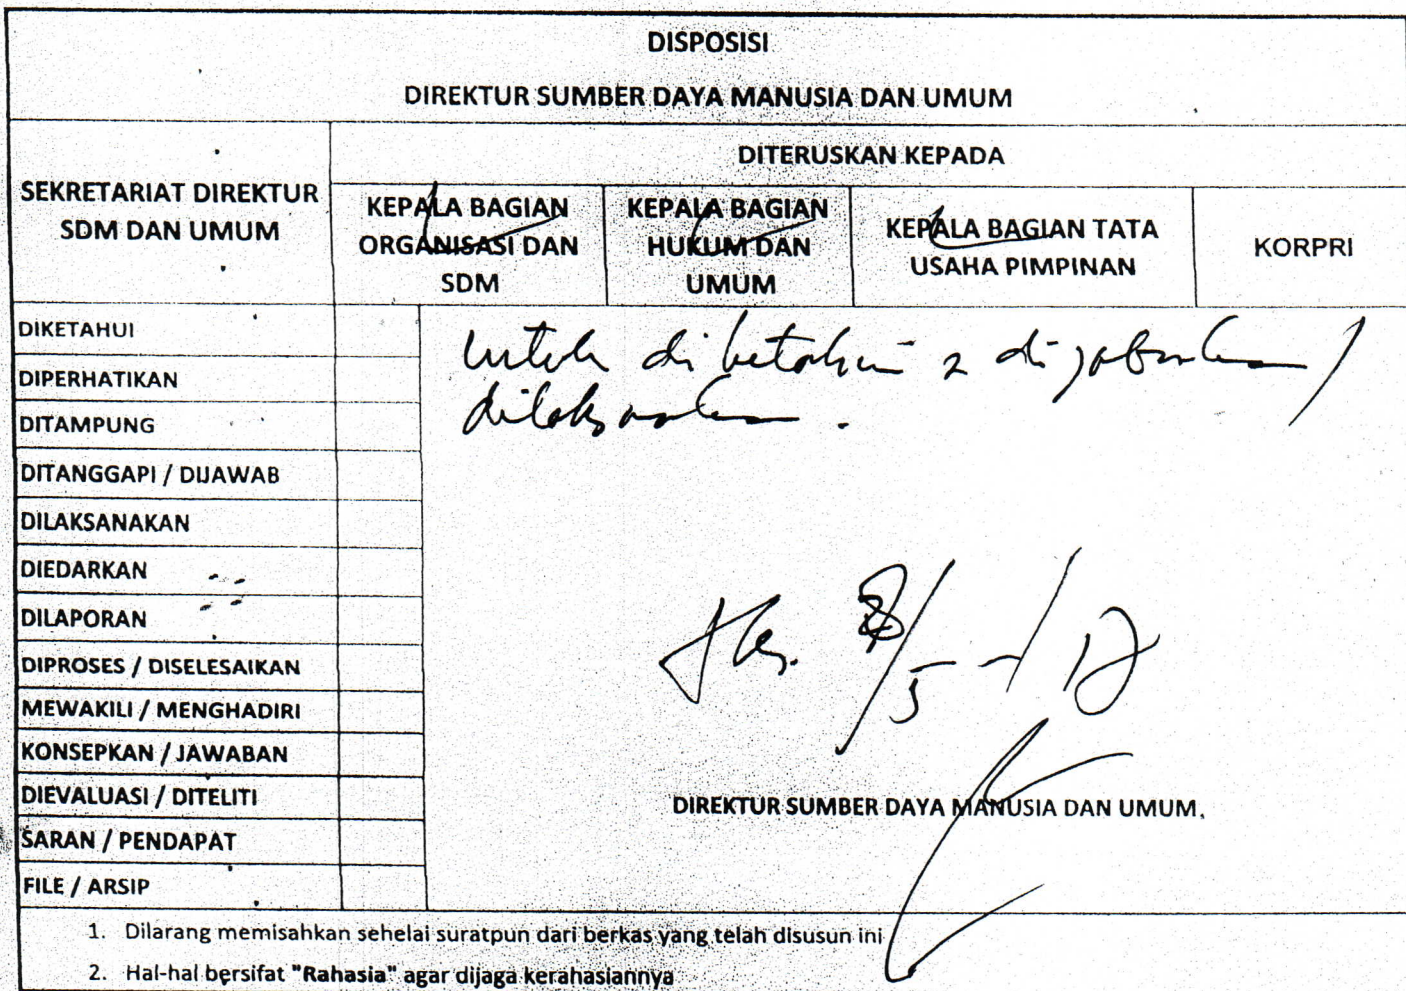 DISPOSISI
DIREKTUR SUMBER DAYA MANUSIA DAN UMUM
SEKRETARIAT DIREKTUR
SDM DAN UMUM
DITERUSKAN KEPADA
KEPALA BAGIAN
ORGANISASI DAN
SDM
KEPALA BAGIAN
HUKUM DAN
UMUM
KEPALA BAGIAN TATA
USAHA PIMPINAN
KORPRI
DIKETAHUI
DIPERHATIKAN
DITAMPUNG
DITANGGAPI / DIJAWAB
DILAKSANAKAN
DIEDARKAN
DILAPORAN
DIPROSES / DISELESAIKAN
MEWAKILI / MENGHADIRI
KONSEPKAN / JAWABAN
DIEVALUASI / DITELITI
SARAN / PENDAPAT
FILE / ARSIP
untuk diketahui
dilaksanakan.
DIREKTUR SUMBER DAYA MANUSIA DAN UMUM,
1. Dilarang memisahkan sehelai suratpun dari berkas yang telah disusun ini
2. Hal-hal bersifat "Rahasia" agar dijaga kerahasiannya